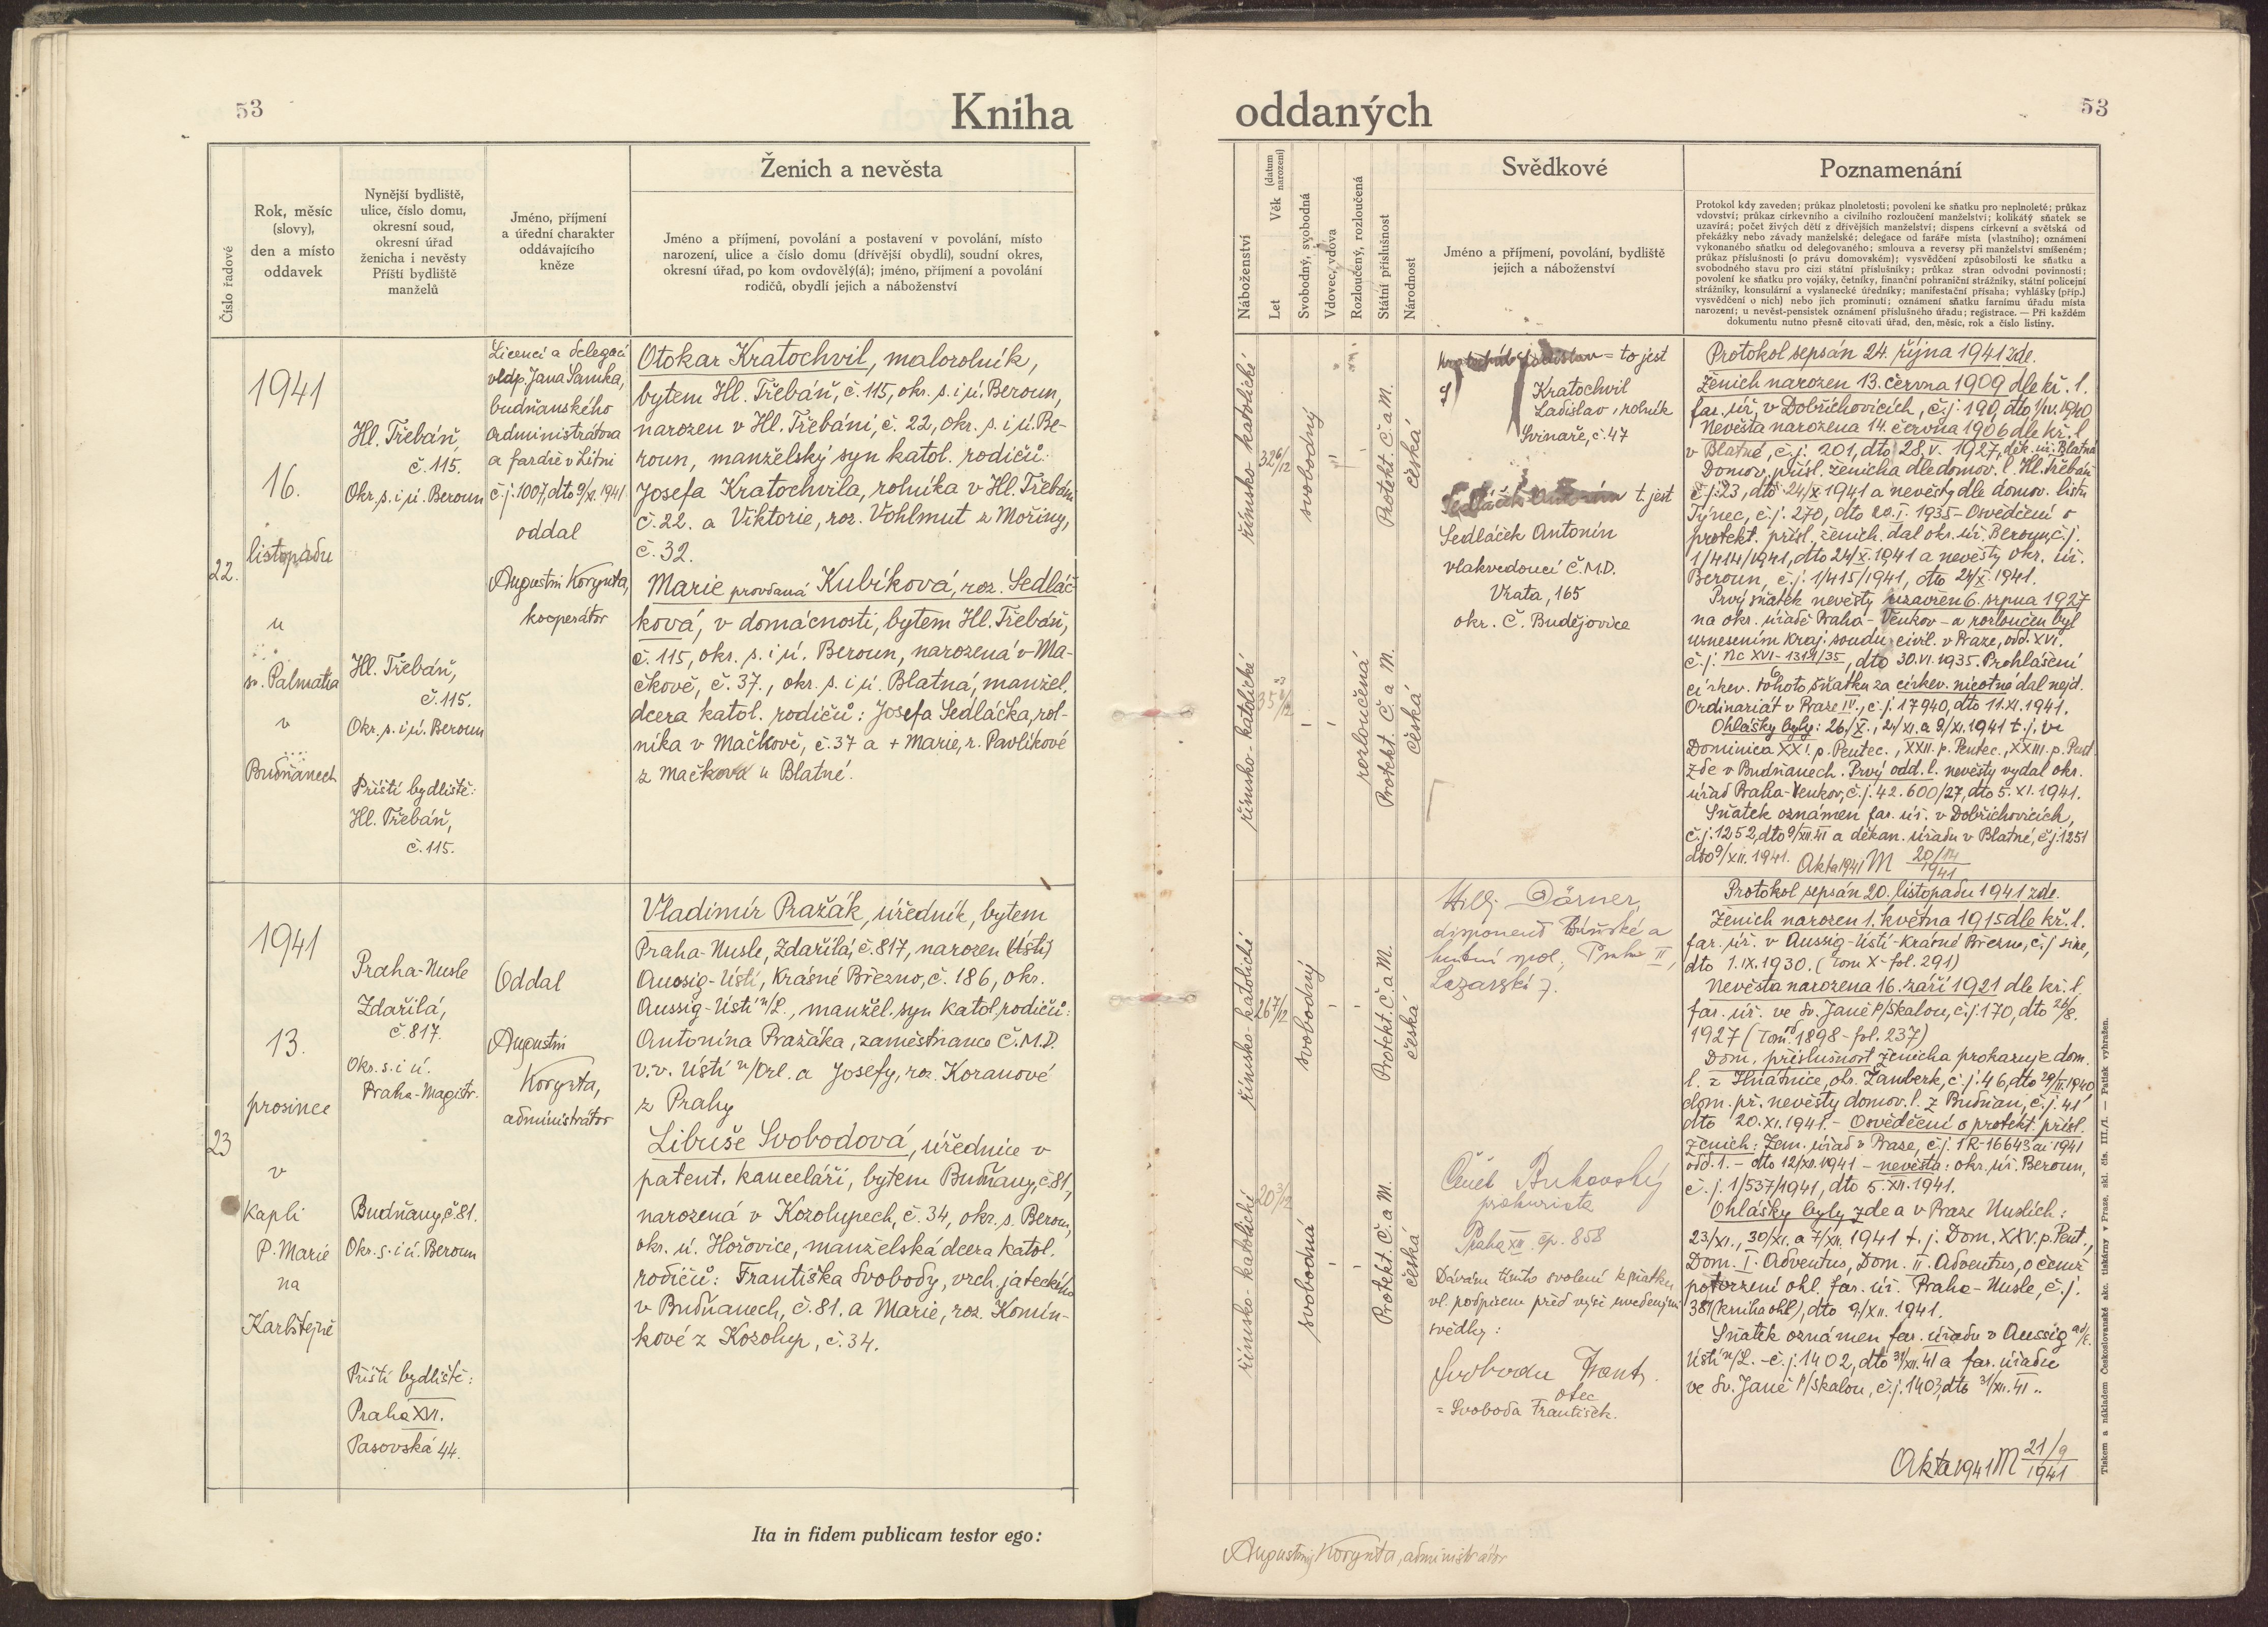 53
Kniha
Číslo řadové
Rok, měsíc
(slovy),
den a místo
oddavek
Nynější bydliště,
ulice, číslo domu,
okresní soud,
okresní úřad
ženicha i nevěsty
Příští bydliště
manželů
Jméno, příjmení
a úřední charakter
oddávajícího
kněze
Ženich a nevěsta
Jméno a příjmení, povolání a postavení v povolání, místo
narození, ulice a číslo domu (dřívější obydlí), soudní okres,
okresní úřad, po kom ovdověl(á); jméno, příjmení a povolání
rodičů, obydlí jejich a náboženství
22.
1941
16.
listopadu
u
sv. Palmatia
v
Budňanech
Hl. Třebáň,
č. 115.
Okr. s. i ú. Beroun
Hl. Třebáň,
č. 115.
Okr. s. i ú. Beroun
Příští bydliště:
Hl. Třebáň,
č. 115.
Licencí a delegací
vldp. Jana Samka,
budňanského
administrátora
a faráře v Litni
č.j. 1007, dto 9/XI. 1941
oddal
Augustin Korynta,
kooperátor
Otokar Kratochvil, malorolník,
bytem Hl. Třebáň, č. 115, okr. s. i ú. Beroun,
narozen v Hl. Třebáni, č. 22, okr. s. i ú. Be-
roun, manželský syn katol. rodičů:
Josefa Kratochvila, rolníka v Hl. Třebáni
č. 22. a Viktorie, roz. Vohlmut z Mořiny,
č. 32.
Marie provdaná Kubíková, roz. Sedláč-
ková, v domácnosti, bytem Hl. Třebáň,
č. 115, okr. s. i ú. Beroun, narozená v Ma-
čkově, č. 37., okr. s. i ú. Blatná, manžel.
dcera katol. rodičů: Josefa Sedláčka, rol-
níka v Mačkově, č. 37 a + Marie, r. Pavlíkové
z Mačkova u Blatné.
23
1941
13.
prosince
v
kapli
P. Marie
na
Karlštejně
Praha-Nusle
Zdařilá,
č. 817.
Okr. s. i ú.
Praha-Magistr.
Budňany, č. 81.
Okr. s. i ú. Beroun
Příští bydliště:
Praha XVI.
Pasovská 44.
Oddal
Augustin
Korynta,
administrátor
Vladimír Pražák, úředník, bytem
Praha-Nusle, Zdařilá, č. 817, narozen (Ústí)
Aussig-Ústí, Krásné Březno, č. 186, okr.
Aussig-Ústí n/L., manžel. syn katol. rodičů:
Antonína Pražáka, zaměstnance Č.M.D.
v.v. Ústí n/Orl. a Josefy, roz. Koranové
z Prahy
Libuše Svobodová, úřednice v
patent. kanceláři, bytem Budňany, č. 81,
narozená v Kozolupech, č. 34, okr. s. Beroun,
okr. ú. Hořovice, manželská dcera katol.
rodičů: Františka Svobody, vrch. jateckého
v Budňanech, č. 81. a Marie, roz. Komín-
kové z Kozolup, č. 34.
Ita in fidem publicam testor ego:
oddaných
53
Náboženství
Let
Věk
(datum
narození)
Svobodný, svobodná
Vdovec, vdova
Rozloučený, rozloučená
Státní příslušnost
Národnost
Svědkové
Jméno a příjmení, povolání, bydliště
jejich a náboženství
Poznamenání
Protokol kdy zaveden; průkaz plnoletosti; povolení ke sňatku pro neplnoleté; průkaz
vdovství; průkaz církevního a civilního rozloučení manželství; kolikátý sňatek se
uzavírá; počet živých dětí z dřívějších manželství; dispens církevní a světská od
překážky nebo závady manželské; delegace od faráře místa (vlastního); oznámení
vykonaného sňatku od delegovaného; smlouva a reversy při manželství smíšeném;
průkaz příslušnosti (o právu domovském); vysvědčení způsobilosti ke sňatku a
svobodného stavu pro cizí státní příslušníky; průkaz stran odvodní povinnosti;
povolení ke sňatku pro vojáky, četníky, finanční pohraniční strážníky, státní policejní
strážníky, konsulární a vyslanecké úředníky; manifestační přísaha; vyhlášky (příp.)
vysvědčení o nich) nebo jich prominutí; oznámení sňatku farnímu úřadu místa
narození; u nevěst-pensistek oznámení příslušného úřadu; registrace. — Při každém
dokumentu nutno přesně citovati úřad, den, měsíc, rok a číslo listiny.
římsko-katolické
32 6/12
svobodný
Protekt. Č. a M.
česká
římsko-katolické
rozloučená
Protekt. Č. a M.
česká
Ladislav = to jest
Kratochvil
Ladislav, rolník
Svinaře, č. 47
Sedláček Antonín t. jest
Sedláček Antonín
vlakvedoucí Č.M.D.
Vrata, 165
okr. Č. Budějovice
Protokol sepsán 24. října 1941 zde.
Ženich narozen 13. června 1909 dle kř. l.
far. úř. v Dobřichovicích, č.j. 190, dto 1/IV. 1940
Nevěsta narozena 14. června 1906 dle kř. l.
v Blatné, č.j. 201, dto 28. V. 1927, děk. úř. Blatná
Domov. přísl. ženicha dle domov. l. Hl. Třebáň
č.j. 23, dto 24/X 1941 a nevěsty dle domov. listu
Týnec, č.j. 270, dto 20. I. 1935 - Osvědčení o
protekt. přísl. ženich. dal okr. úř. Beroun, č.j.
1/414/1941, dto 24/X. 1941 a nevěsty okr. úř.
Beroun, č.j. 1/415/1941, dto 24/X. 1941.
Prvý sňatek nevěsty uzavřen 6. srpna 1927
na okr. úřadě Praha-Venkov - a rozloučen byl
usnesením kraj. soudu civil. v Praze, odd. XVI.
č.j. Nc XVI-1314/35, dto 30. VI. 1935. Prohlášení
církev. tohoto sňatku za církev. nicotné dal nejd.
Ordinariát v Praze IV., č.j. 17940, dto 11. XI. 1941.
Ohlášky byly: 26/X., 2/XI. a 9/XI. 1941 t.j. ve
Dominica XXI. p. Pentec., XXII. p. Pentec., XXIII. p. Pent
zde v Budňanech. Prvý odd. l. nevěsty vydal okr.
úřad Praha-Venkov, č.j. 42.600/27, dto 5. XI. 1941.
Sňatek oznámen far. úř. v Dobřichovicích,
č.j. 1252, dto 9/XII. 41 a děkan. úřadu v Blatné, č.j. 1251
dto 9/XII. 1941. Akta 1941 M 20/14
1941
římsko-katolické
26 7/12
svobodný
Protekt. Č. a M.
česká
římsko-katolické
20 3/12
svobodná
Protekt. Č. a M.
česká
Willy Dörner,
disponent Báňské a
hutní spol., Praha II,
Lazarská 7.
prokurista
Praha XII. čp. 858
Dávám tímto svolení k sňatku
vl. podpisem před výše uvedenými
svědky:
Svoboda Frant.
otec
= Svoboda František.
Protokol sepsán 20. listopadu 1941 zde.
Ženich narozen 1. května 1915 dle kř. l.
far. úř. v Aussig-Ústí-Krásné Březno, č.j. sine,
dto 1. IX. 1930. (Tom X - fol. 291)
Nevěsta narozena 16. září 1921 dle kř. l.
far. úř. ve Sv. Janě p/Skalou, č.j. 170, dto 26/8.
1927 (Tom. 1898 - fol. 237)
Dom. příslušnost ženicha prokazuje dom.
l. z Hnátnice, okr. Žamberk, č.j. 46, dto 29/II. 1940,
dom. př. nevěsty domov. l. z Budňan, č.j. 41
dto 20. XI. 1941. - Osvědčení o protekt. přísl.
ženich: Zem. úřad v Praze, č.j. 1R-16643 ai 1941
odd. 1. - dto 12/XII. 1941 - nevěsta: okr. úř. Beroun,
č.j. 1/537/1941, dto 5. XII. 1941.
Ohlášky byly zde a v Praze Nuslích:
23/XI., 30/XI. a 7/XII. 1941 t. j. Dom. XXV. p. Pent.,
Dom. I. Adventus, Dom. II. Adventus, o čemž
potvrzení ohl. far. úř. Praha-Nusle, č.j.
381 (kniha ohl), dto 9/XII. 1941.
Sňatek oznámen far. úřadu v Aussig a/E.
Ústí n/L. - č.j. 1402, dto 31/XII. 41 a far. úřadu
ve Sv. Janě p/Skalou, č.j. 1403, dto 31/XII. 41..
Akta 1941 M 21/9
1941
Augustin Korynta, administrátor
Tiskem a nákladem Československé akc. tiskárny v Praze, skl. čís. III./1. — Patisk vyhražen.